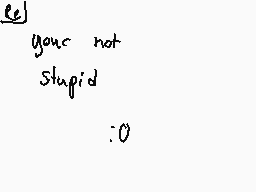 your not
stupid
:0